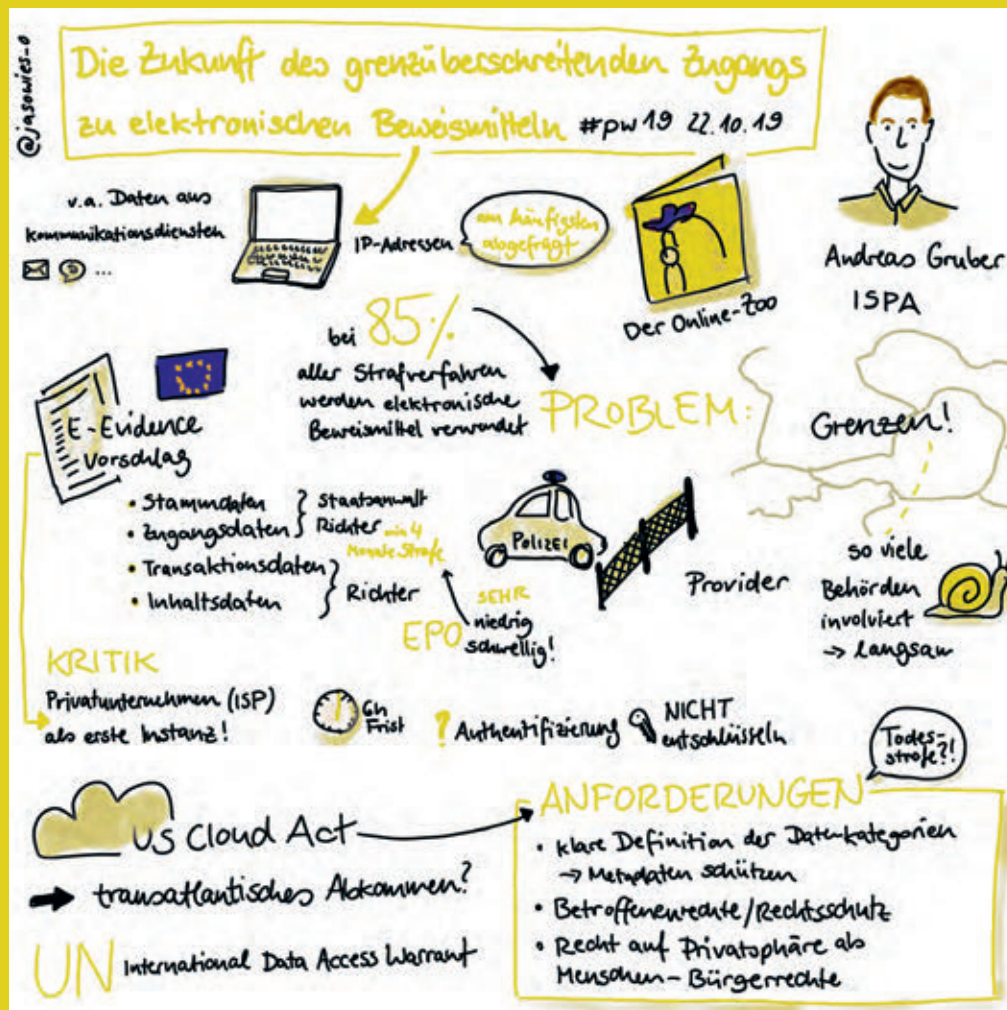 @jasowies_o
Die Zukunft des grenzüberschreitenden Zugangs
zu elektronischen Beweismitteln #pw19 22.10.19
v.a. Daten aus
Kommunikationsdiensten
...
IP-Adressen
am häufigsten
abgefragt
Der Online-Zoo
Andreas Gruber
ISPA
bei 85%
aller Strafverfahren
werden elektronische
Beweismittel verwendet
PROBLEM:
Grenzen!
E-Evidence
Vorschlag
• Stammdaten
• Zugangsdaten
Staatsanwalt
Richter
min 4
Monate Strafe
• Transaktionsdaten
• Inhaltsdaten
Richter
EPO
SEHR
niedrig
schwellig!
POLIZEI
Provider
so viele
Behörden
involviert
→ langsam
KRITIK
Privatunternehmen (ISP)
als erste Instanz!
6h
Frist
? Authentifizierung
NICHT
entschlüsseln
Todes-
strafe?!
US Cloud Act
→ transatlantisches Abkommen?
UN International Data Access Warrant
ANFORDERUNGEN
• klare Definition der Datenkategorien
→ Metadaten schützen
• Betroffenenrechte/Rechtsschutz
• Recht auf Privatsphäre als
Menschen-Bürgerrechte